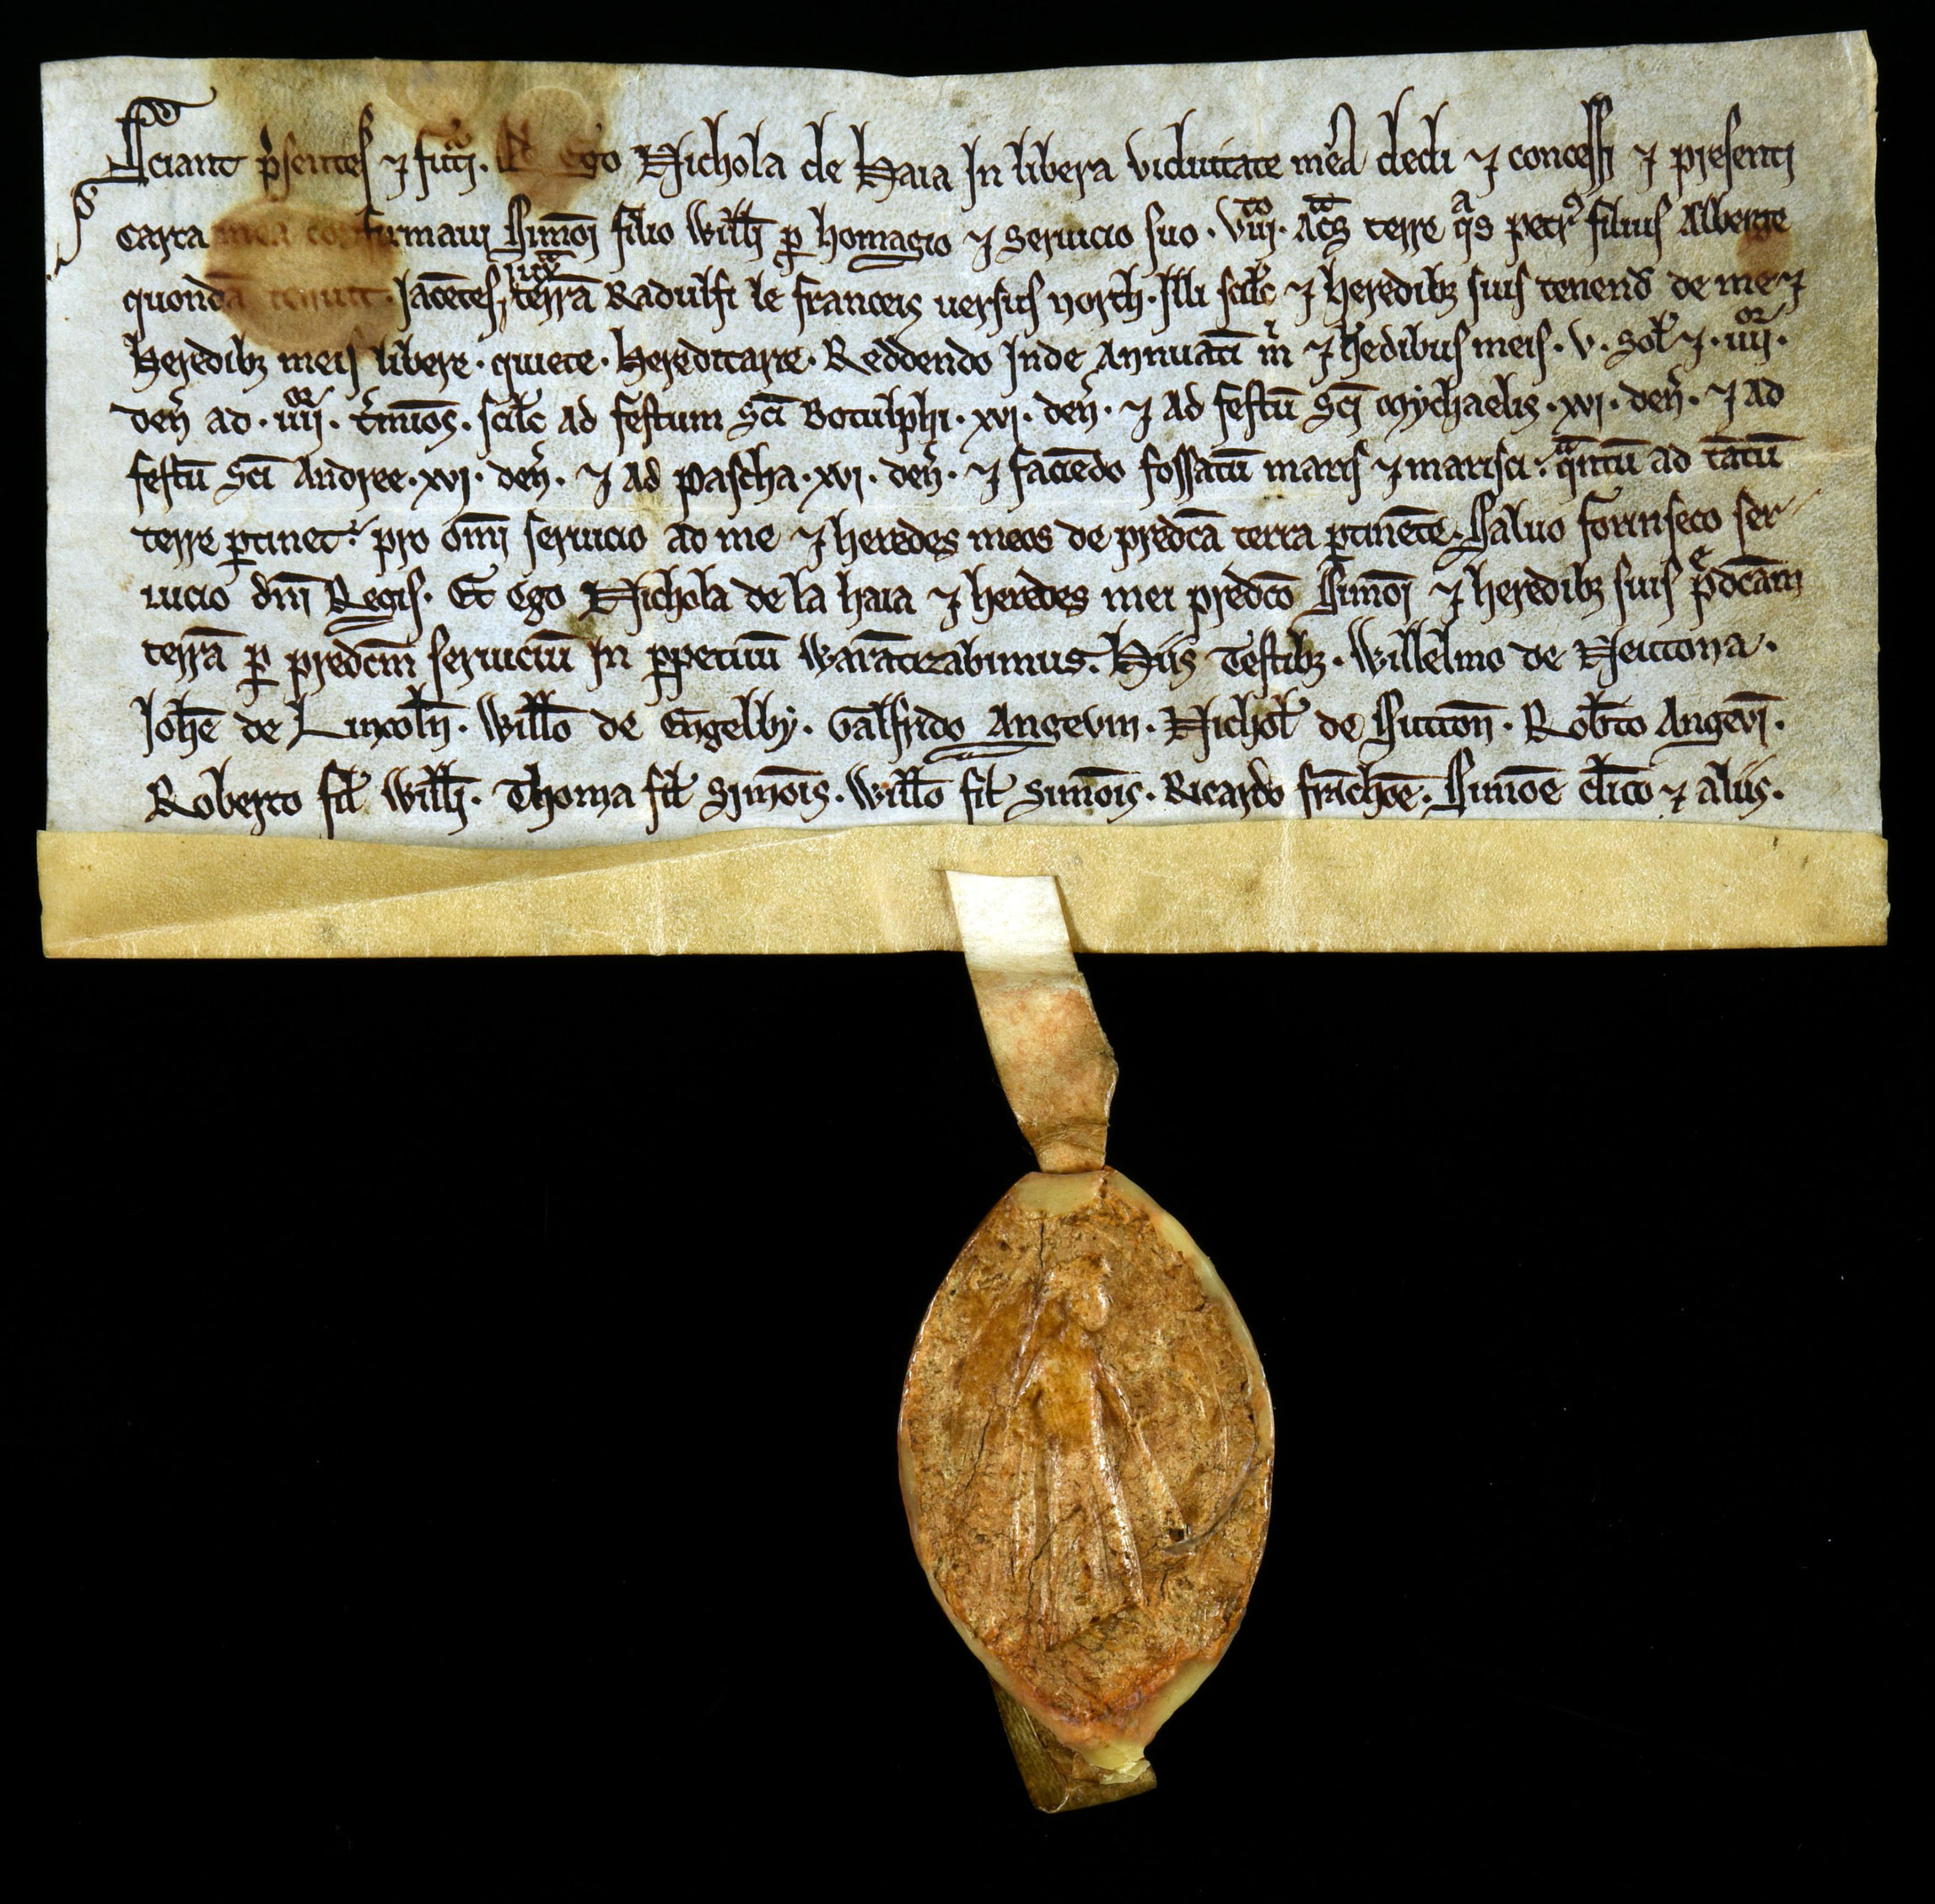 Sciant p͛sentes ⁊ futͥi. Qᵈ Ego Nichola de Haia In libera viduitate mea dedi ⁊ concessi ⁊ presenti
carta mea confirmaui Simoī filio Willī ꝑ homagio ⁊ seruicio suo . viiiᵗᵒ. Ac̃s terre qᵃs petrꝰ filius Alberge
quondā tenuit . Iacētes iuxᵃ terrā Radulfi le franceis uersus north . Illi scilꝫ ⁊ heredibꝫ suis tenend̃ de me ⁊
heredibꝫ meis libere . quiete . hereditarie . Reddendo Inde Annuatī m̃ ⁊ h̃edibus meis . v . sol̃ ⁊ . iiiiᵒʳ .
den̄ ad . iiiiᵒʳ . t̃mīos . scilꝫ ad festum Sc̄i Botulphi . xvi . den̄ . ⁊ ad festū Sc̄i Mychaelis . xvi . den̄ . ⁊ ad
festū Sc̄i Andree . xvi . den̄ . ⁊ ad pascha . xvi . den̄ . ⁊ faciēdo fossatū maris ⁊ marisci : qᵃntū ad tātū
terre ꝑtinet . pro om̄i seruicio ad me ⁊ heredes meos de predc̄a terra ꝑtinēte . Saluo forinseco ser
uicio dn̄i Regis . Et Ego Nichola de la haia ⁊ heredes mei predc̄o Simoī ⁊ heredibꝫ suis p͛dc̄am
terrā ꝑ predc̄m seruiciū In ꝑpetuū warātizabimus . Hiis Testibꝫ . Willelmo de Neutona .
Ioh̄e de Lincoln̄ . Will̄o de Engelby . Galfrido Angevin . Nichol̃ de Sutton̄ . Rob̄to Angevī .
Roberto fil̃ Willī . Thoma fil̃ Simōis . Will̄o fil̃ Simōis . Ricardo frācheē . Simōe cl̄ico ⁊ aliis .